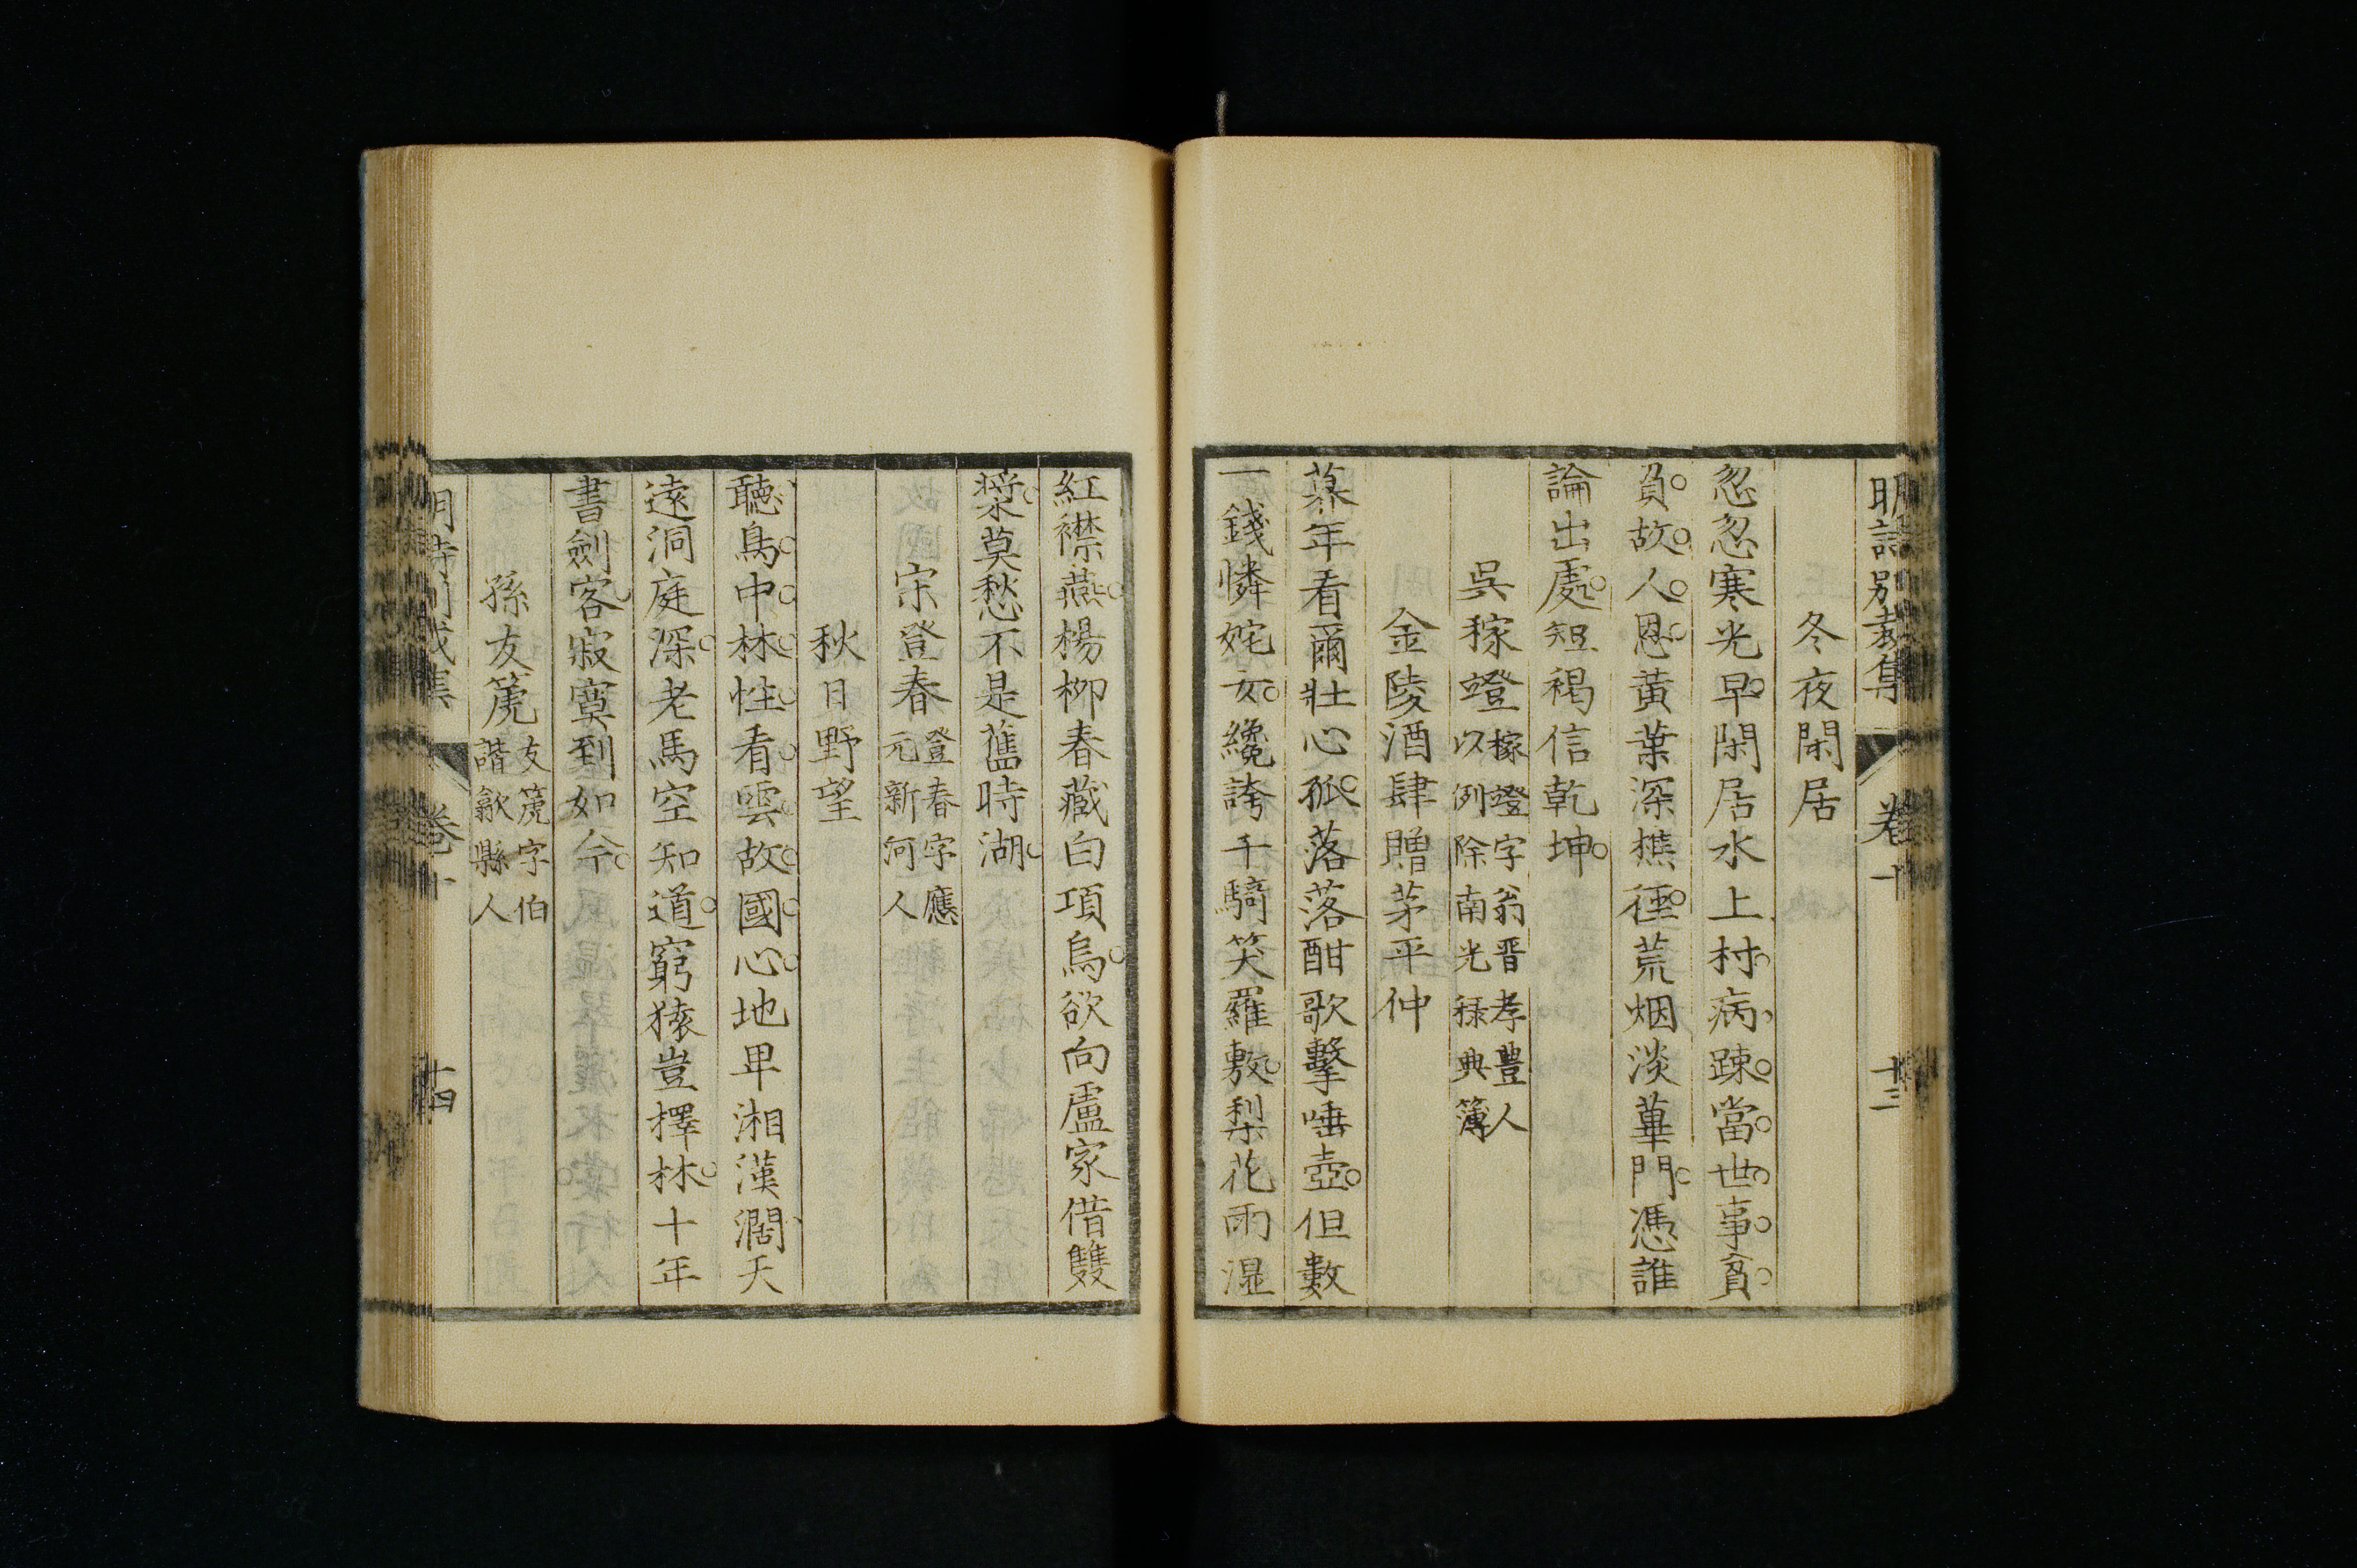 明詩別裁集 卷十 十三
冬夜閑居
忽忽寒光早閑居水上村病疎當世事貧
負故人恩黃葉深樵徑荒烟淡蓽門憑誰
論出處短褐信乾坤
吳稼竳 稼竳字翁晋孝豐人
以例除南光祿典簿
金陵酒肆贈茅平仲
暮年看爾壯心孤落落酣歌擊唾壺但數
一錢憐姹女纔誇千騎笑羅敷梨花雨濕
紅襟燕楊柳春藏白項烏欲向盧家借雙
槳莫愁不是舊時湖
宋登春 登春字應
元新河人
秋日野望
聽鳥中林性看雲故國心地卑湘漢濶天
遠洞庭深老馬空知道窮猿豈擇林十年
書劍客寂寞到如今
孫友篪 友篪字伯
諧歙縣人
明詩別裁集 卷十 十四